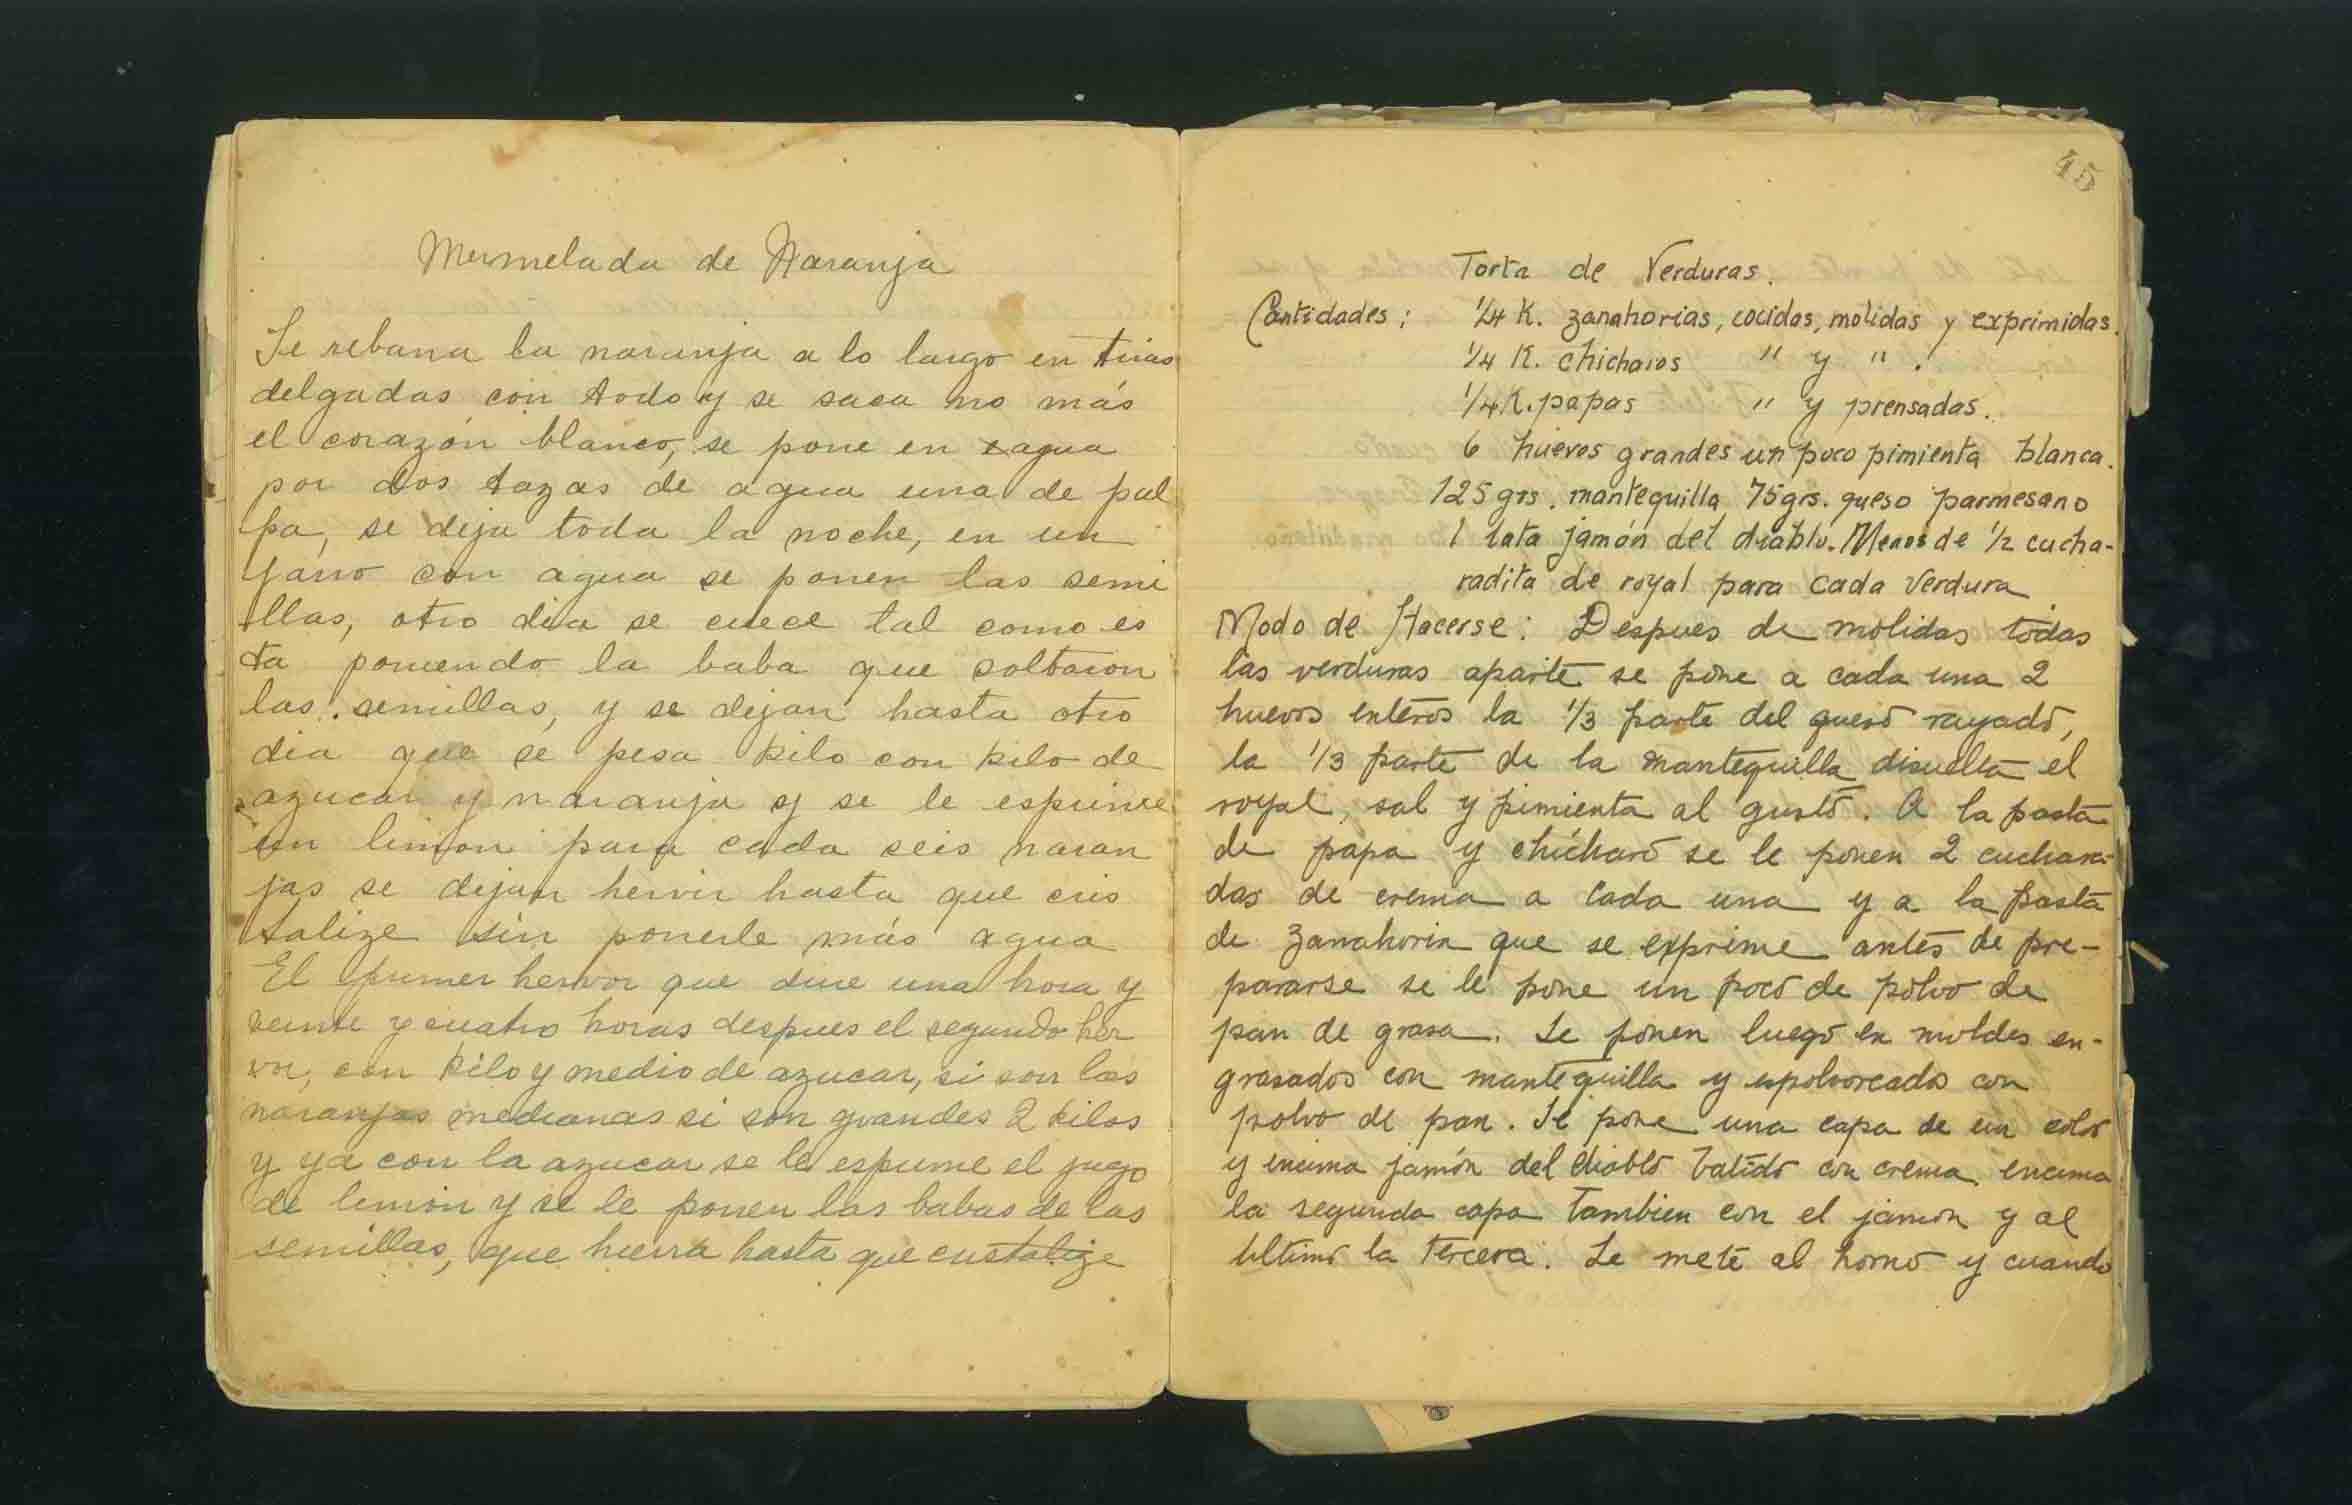 Mermelada de Naranja
Se rebana la naranja a lo largo en tiras
delgadas con todo y se saca no más
el corazón blanco, se pone en agua
por dos tazas de agua una de pul
pa, se deja toda la noche, en un
jarro con agua se ponen las semi
llas, otro dia se cuece tal como es
ta poniendo la baba que soltaron
las semillas, y se dejan hasta otro
dia que se pesa kilo con kilo de
azucar y naranja y se le esprime
un limon para cada seis naran
jas se dejan hervir hasta que cris
talize sin ponerle más agua
El primer hervor que dure una hora y
veinte y cuatro horas despues el segundo her
vor, con kilo y medio de azucar, si son las
naranjas medianas si son grandes 2 kilos
y ya con la azucar se le esprime el jugo
de limón y se le ponen las babas de las
semillas, que hierva hasta que cristalize
45
Torta de Verduras.
Cantidades: 1/4 K. zanahorias, cocidas, molidas y exprimidas.
1/4 K. chicharos " y " .
1/4 K. papas " y prensadas.
6 huevos grandes un poco pimienta blanca.
125 grs. mantequilla 75 grs. queso parmesano
1 lata jamón del diablo. Menos de 1/2 cucha-
radita de royal para cada verdura
Modo de Hacerse: Despues de molidas todas
las verduras aparte se pone a cada una 2
huevos enteros la 1/3 parte del queso rayado,
la 1/3 parte de la mantequilla disuelta el
royal, sal y pimienta al gusto. A la pasta
de papa y chícharo se le ponen 2 cuchara-
das de crema a cada una y a la pasta
de zanahoria que se exprime antes de pre-
pararse se le pone un poco de polvo de
pan de grasa. Se ponen luego en moldes en-
grasados con mantequilla y espolvoreados con
polvo de pan. Se pone una capa de un color
y encima jamón del diablo batido con crema encima
la segunda capa tambien con el jamón y al
ultimo la tercera. Se mete al horno y cuando